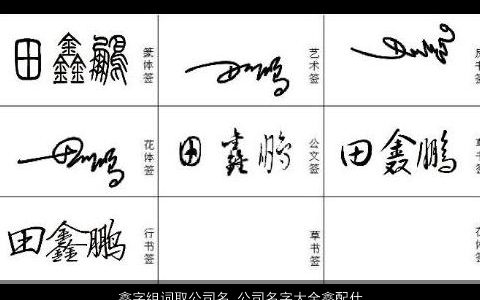 田鑫鹏
篆体签
艺术签
反书签
田鑫鹏
花体签
田鑫鹏
公文签
田鑫鹏
田鑫鹏
行书签
草书签
鑫字组词取公司名 公司名字大全鑫配什